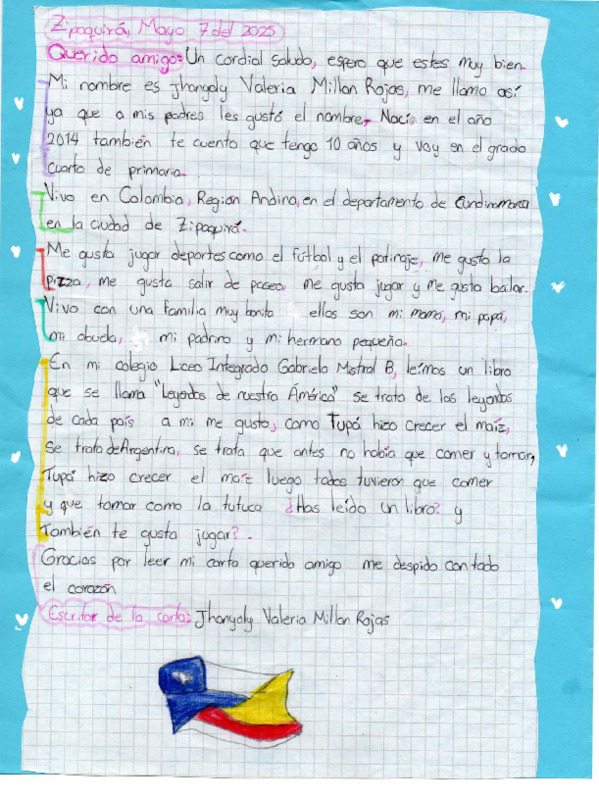 Zipaquirá, Mayo 7 del 2025
Querido amigo: Un cordial saludo, espero que estes muy bien.
Mi nombre es Jhangaly Valeria Millan Rojas, me llamo así
ya que a mis padres les gustó el nombre, Naci en el año
2014 también te cuento que tengo 10 años y voy en el grado
cuarto de primaria.
Vivo en Colombia, Region Andina, en el departamento de Cundinamarca
en la ciudad de Zipaquirá.
Me gusta jugar deportes como el fútbol y el patinaje, me gusta la
pizza, me gusta salir de paseo, me gusta jugar y me gusta bailar.
Vivo con una familia muy bonita ellos son mi mamá, mi papá,
mi abuela, mi padrino y mi hermano pequeño.
En mi colegio Liceo Integrado Gabriela Mistral B, leímos un libro
que se llama "Leyendas de nuestra América" se trata de las leyendas
de cada país a mi me gusto, como Tupá hizo crecer el maíz,
se trata de Argentina, se trata que antes no había que comer y tomar,
Tupá hizo crecer el maíz luego todos tuvieron que comer
y que tomar como la tutuca ¿Has leído un libro? y
También te gusta jugar?.
Gracias por leer mi carta querido amigo me despido con todo
el corazón
Escritor de la carta: Jhangaly Valeria Millan Rojas